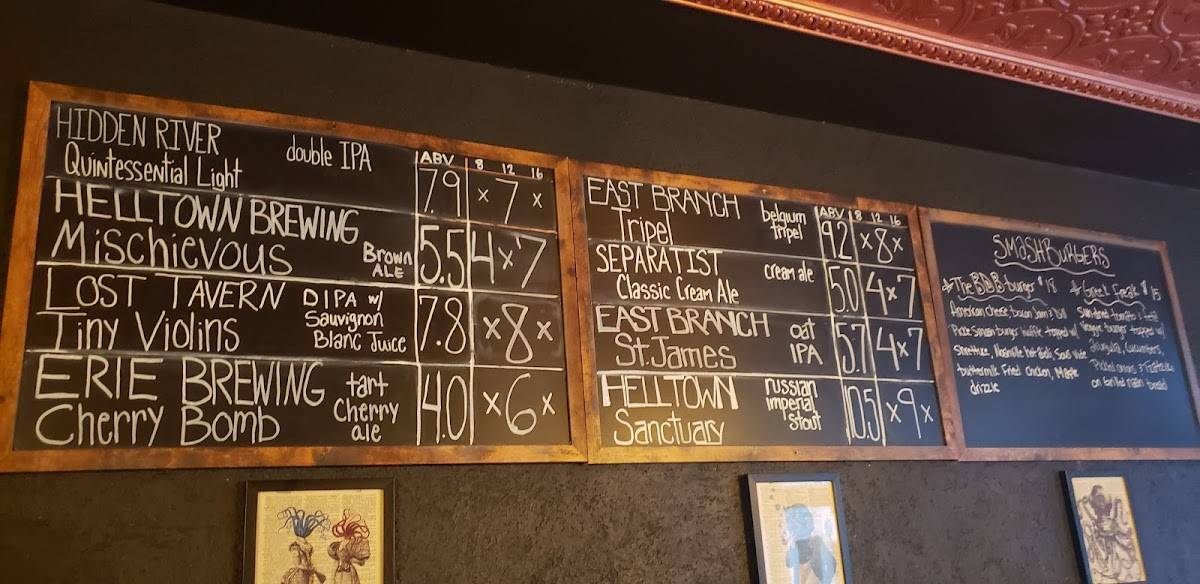 HIDDEN RIVER
double IPA
Quintessential Light
ABV 8 12 16
7.9 x 7 x
HELLTOWN BREWING
Mischievous
Brown
ALE
5.5 4 x 7
LOST TAVERN
Tiny Violins
DIPA w/
Sauvignon
Blanc Juice
7.8 x 8 x
ERIE BREWING
Cherry Bomb
tart
Cherry
ale
4.0 x 6 x
EAST BRANCH
Tripel
belgium
tripel
ABV 8 12 16
9.2 x 8 x
SEPARATIST
cream ale
Classic Cream Ale
5.0 4 x 7
EAST BRANCH
St. James
oat
IPA
5.7 4 x 7
HELLTOWN
Sanctuary
russian
imperial
stout
10.5 x 9 x
SMASHBURGERS
burger $18
American cheese, bacon Jam, Dill
waffle topped w/
Nashville hot
buttermilk Fried chicken, Maple
drizzle
Greek Freak $15
Sundried tomato
Veggie burger topped w/
arugula, Cucumbers,
Pickled onions
on Grilled naan bread